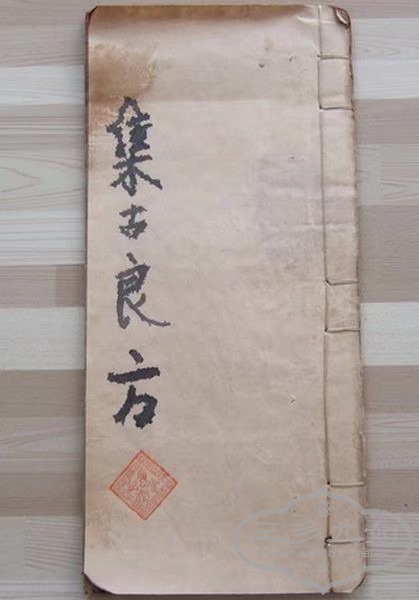 集古良方